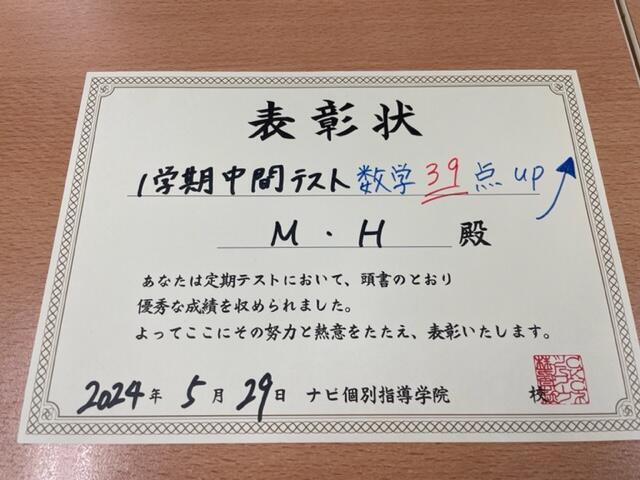 表彰状
1学期中間テスト 数学 39点 up
M・H 殿
あなたは定期テストにおいて、頭書のとおり
優秀な成績を収められました。
よってここにその努力と熱意をたたえ、表彰いたします。
2024年 5月 29日 ナビ個別指導学院 校